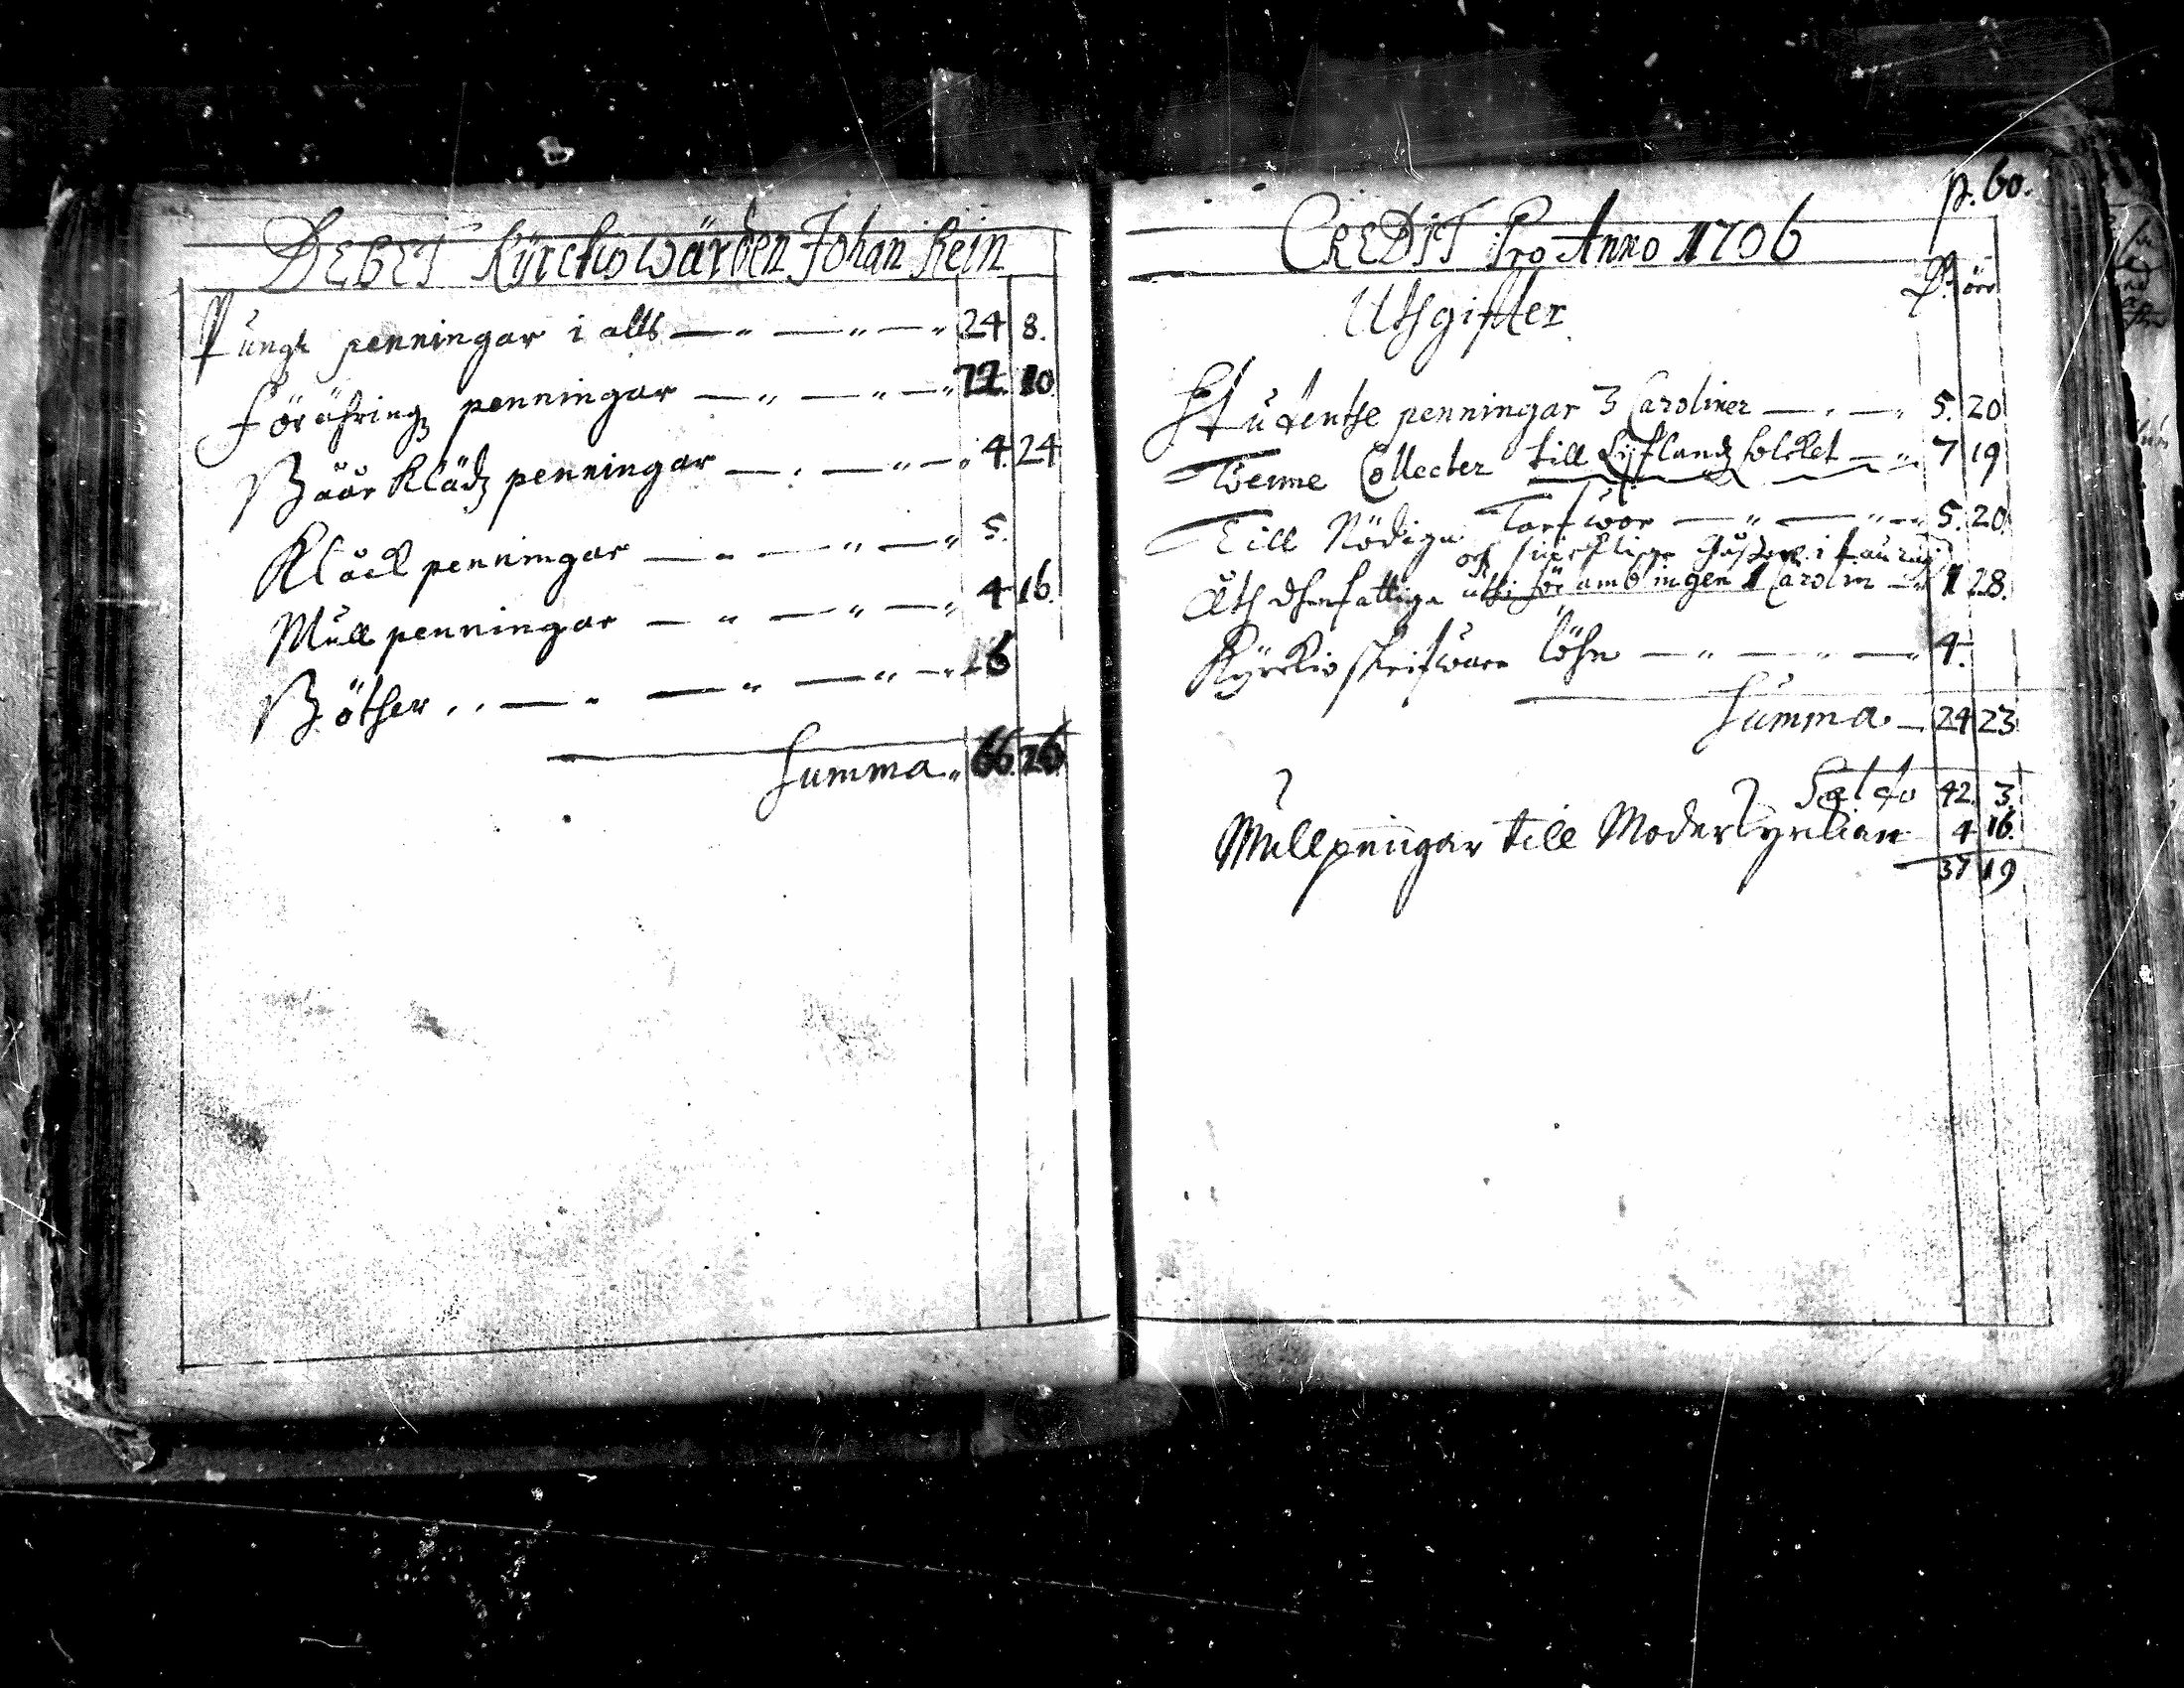 DEBET Kÿrckiowärden Johan Rein
Pungz penningar i alls — " — " — " 24 8.
Föröhringz penningar — " — " — " 12 10
Båår Klädz penningar — . — " — " 4. 24
Klåck penningar — " — " — " 5.
Mull penningar — " — " — " 4 16.
Böther . . — " — " — " — " 16
Summa " 66. 26
p. 60.
CREDIT Pro Anno 1706
Uthgiffter
D. öre
Studenthe penningar 3 Caroliner — . — " 5. 20
Twenne Collecter till Lijflandz folcket — " 7 19
Till Nödige — " — " — " 5. 20
och
Åth dhe fattige 1 Carolin — 1 28.
Kÿrckio skrifware löhn — " — " — " 4.
Summa — 24 23
Saldo 42. 3.
Mullpeningar till Moderkyrkian 4 16.
37 19